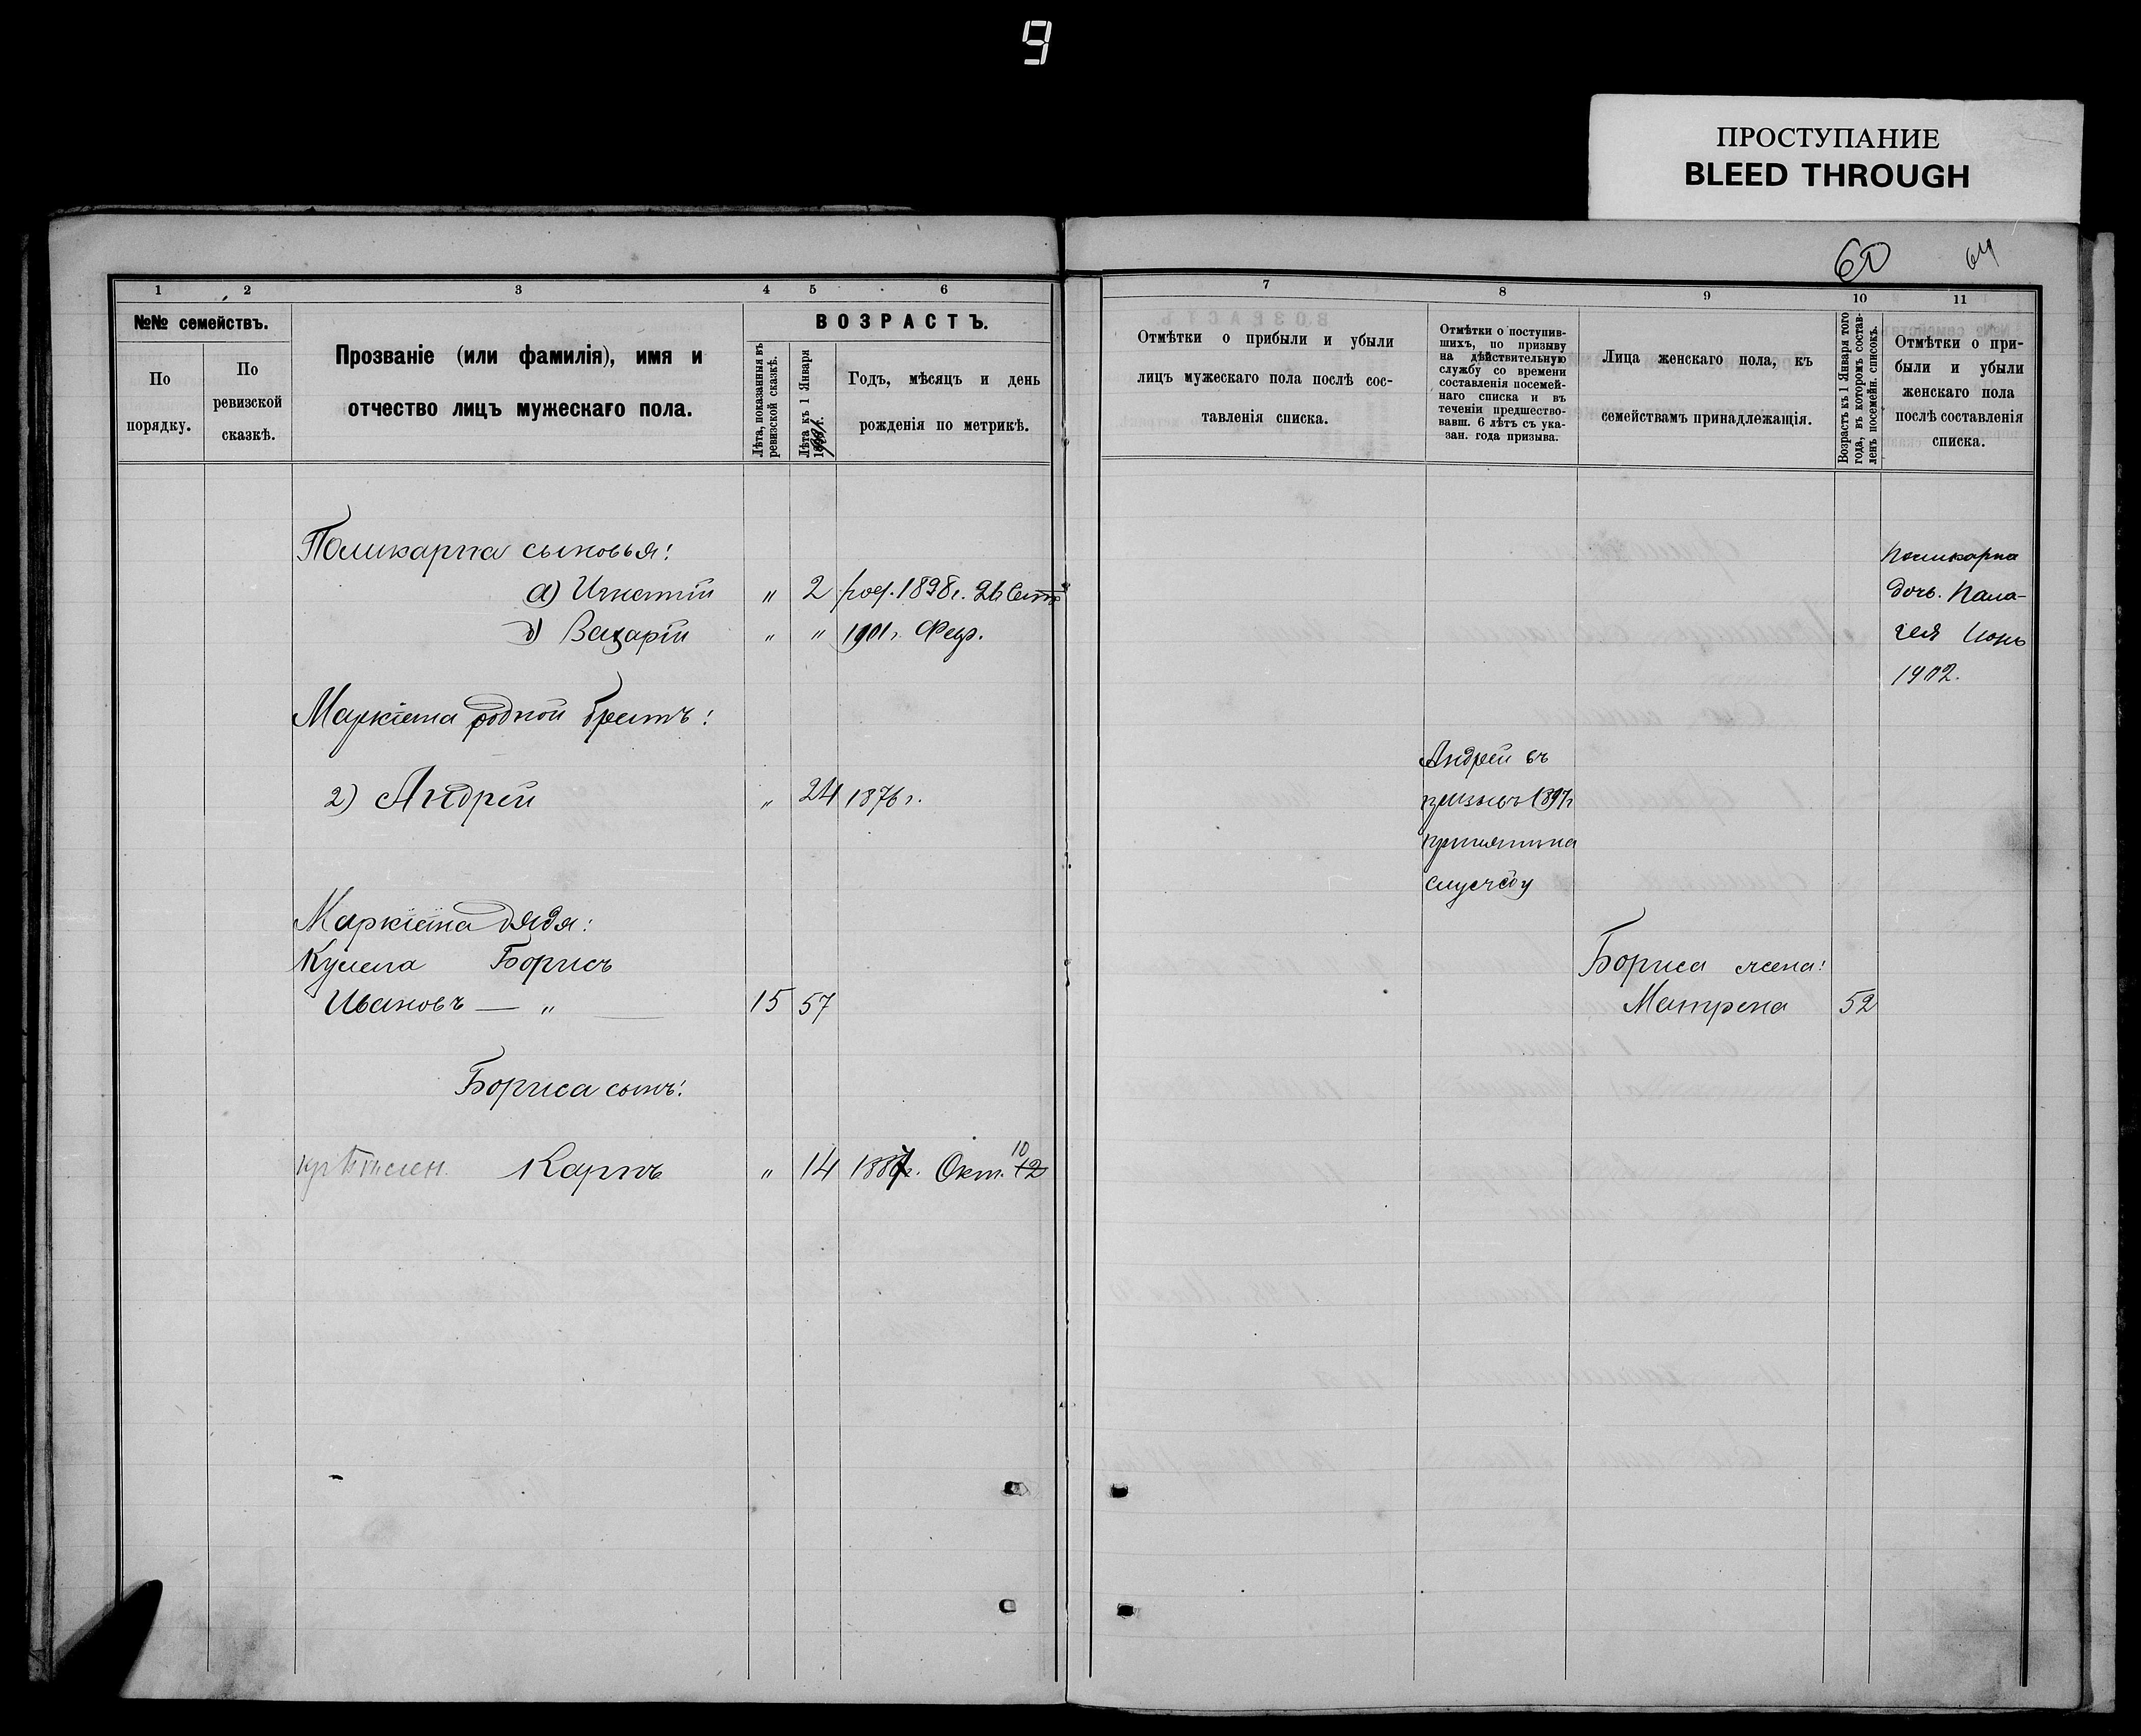 9
ПРОСТУПАНИЕ
BLEED THROUGH
60
64
1 2 3 4 5 6
№№ семействъ.
По порядку.
По ревизской сказкѣ.
Прозваніе (или фамилія), имя и
отчество лицъ мужескаго пола.
ВОЗРАСТЪ.
Лѣта, показанныя въ
ревизской сказкѣ.
Лѣта къ 1 Января
Годъ, мѣсяцъ и день
рожденія по метрикѣ.
Поликарпа сыновья:
а) Игнатій „ 2 род. 1898 г. 26 Сент.
„ „ 1901 г. Февр.
родной братъ:
2) Андрей „ 24 1876 г.
дядя:
Борисъ
Ивановъ — „ — 15 57
Бориса сынъ:
Карпъ „ 14 1887 г. Окт. 10 12
7 8 9 10 11
Отмѣтки о прибыли и убыли
лицъ мужескаго пола послѣ сос-
тавленія списка.
Отмѣтки о поступив-
шихъ, по призыву
на дѣйствительную
службу со времени
составленія посемей-
наго списка и въ
теченіи предшество-
вавш. 6 лѣтъ съ ука-
зан. года призыва.
Лица женскаго пола, къ
семействамъ принадлежащія.
Возрастъ къ 1 Января того
года, въ которомъ состав-
ленъ посемейн. списокъ.
Отмѣтки о при-
были и убыли
женскаго пола
послѣ составленія
списка.
Поликарпа
дочь. Пала-
гея Июнь
1902.
Андрей въ
призывъ 1897 г
принятъ на
службу
Бориса жена:
Матрена 52